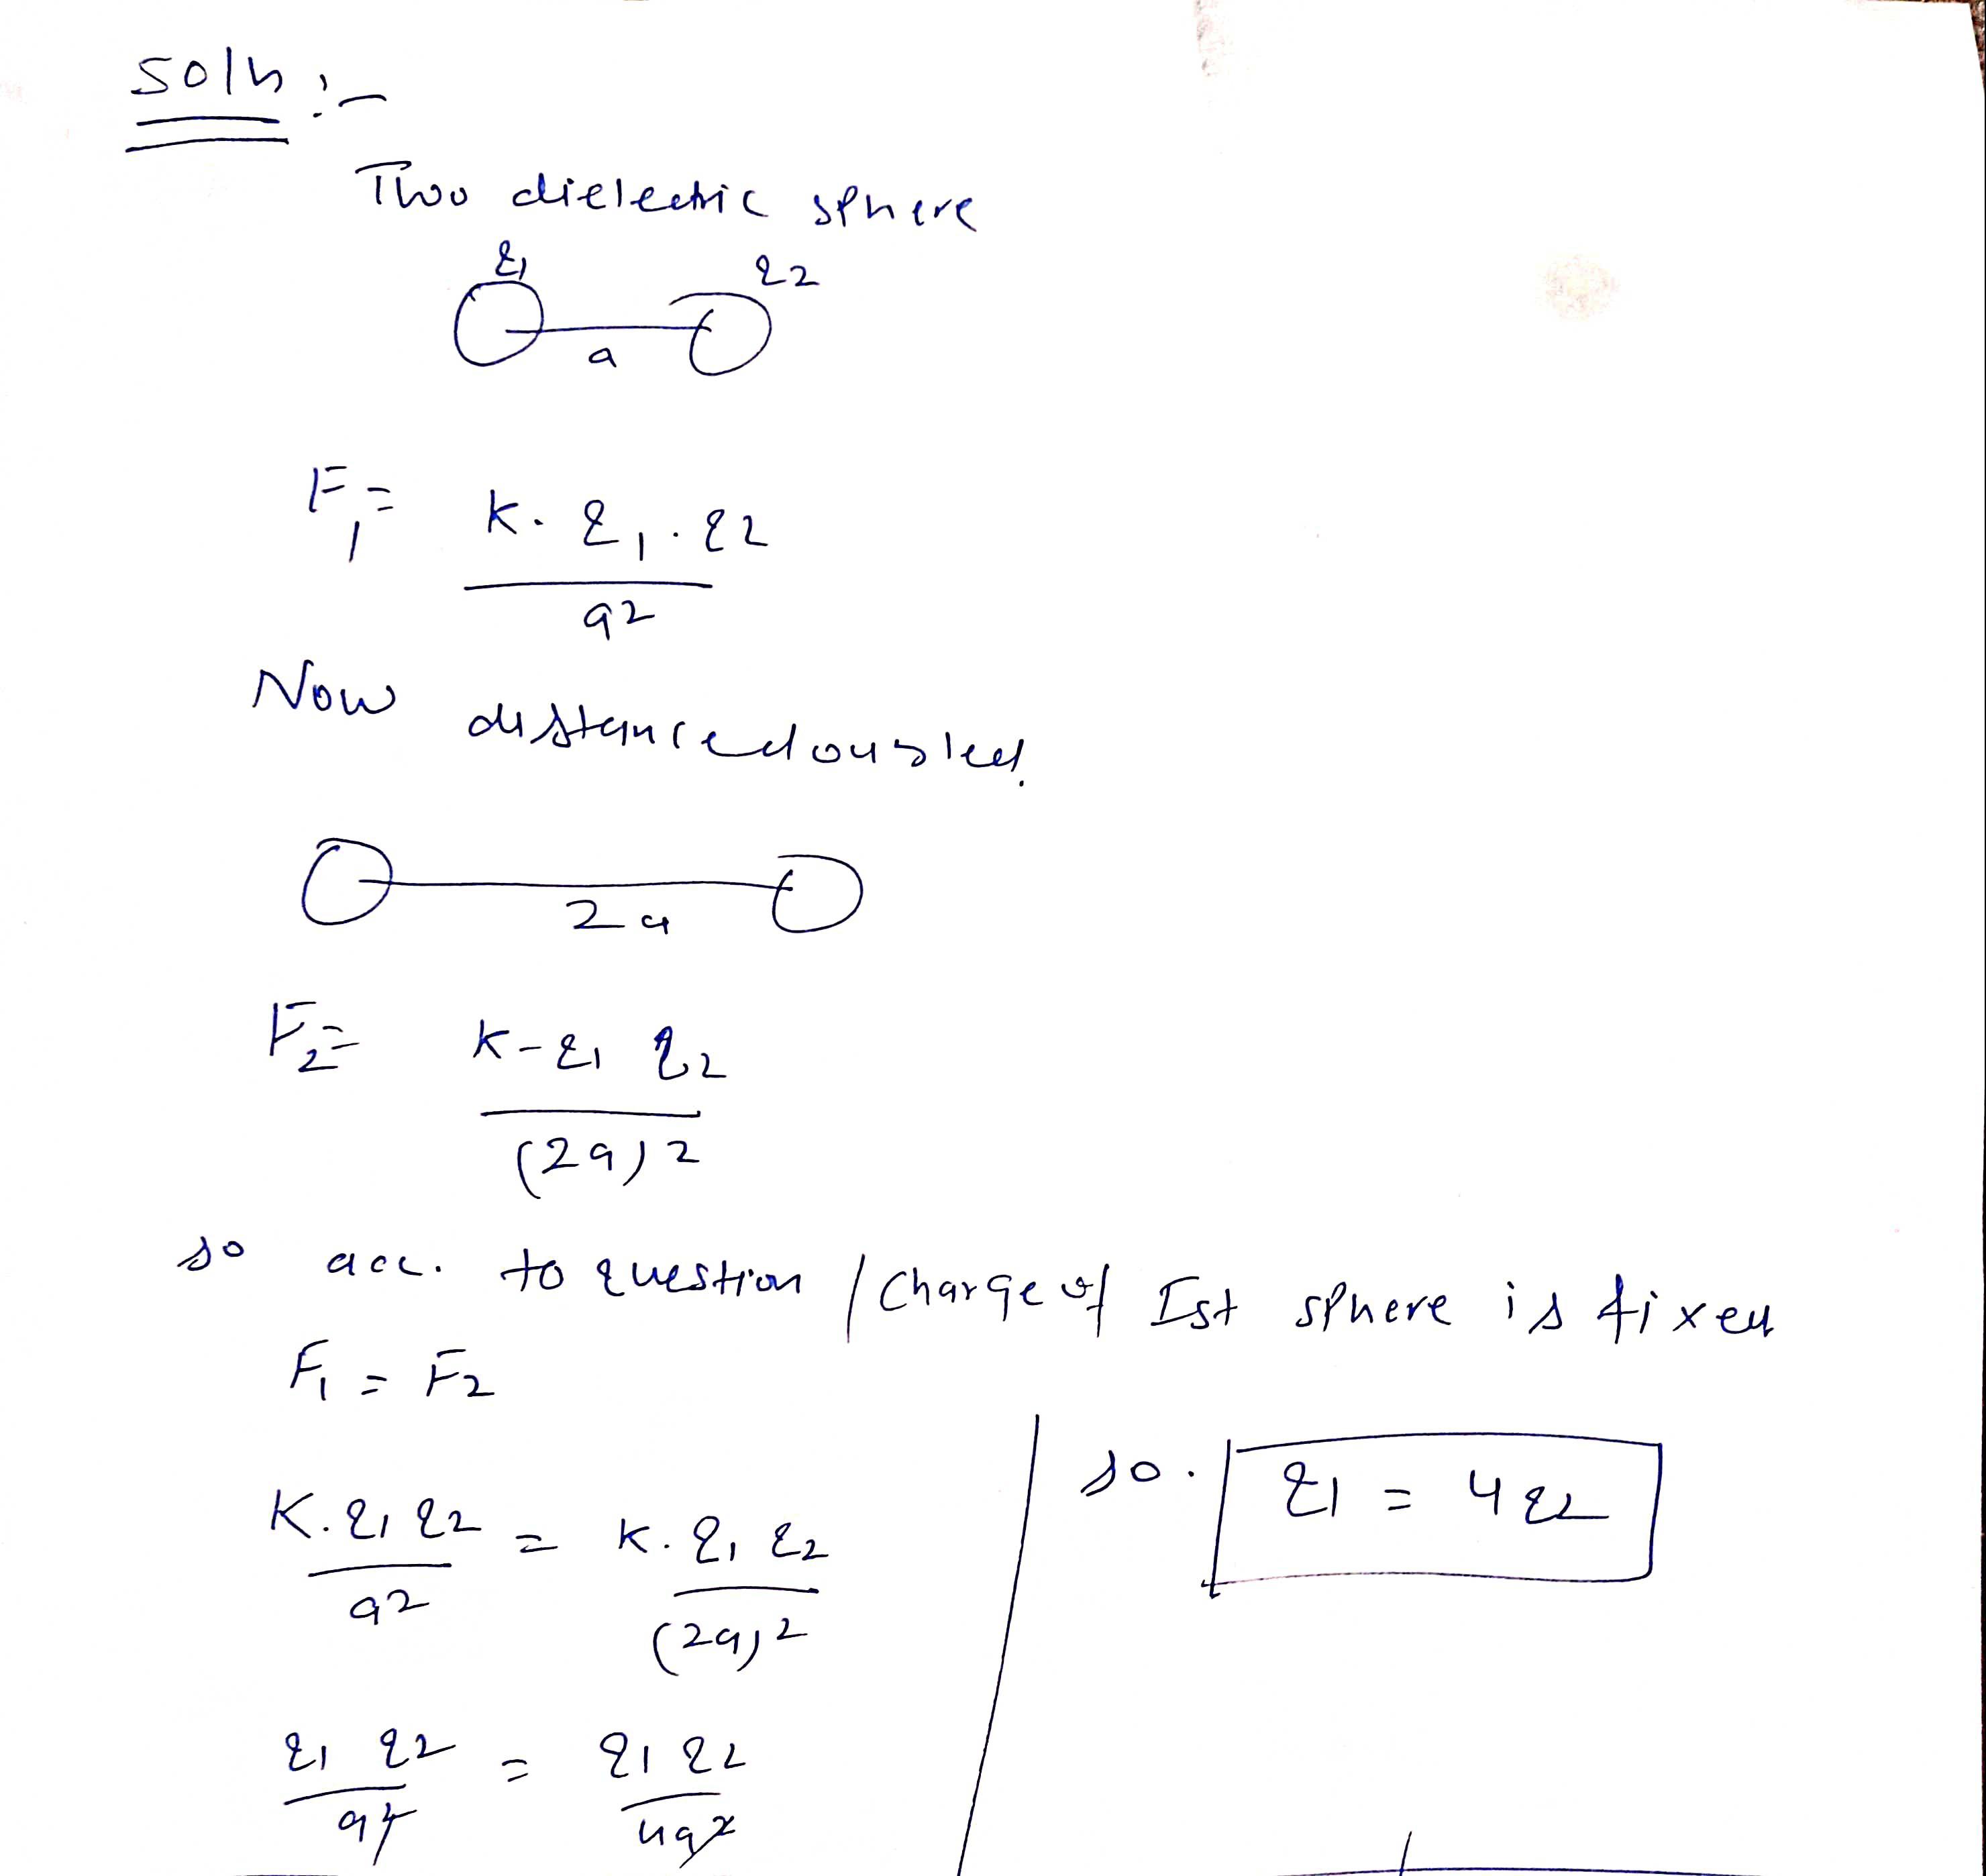 Soln :-
Two dielectric sphere
q1 q2
a
F1 = K. q1 . q2
a2
Now distance doubled.
2a
F2 = K - q1 q2
(2a)2
so acc. to question / Charge of Ist sphere is fixed
F1 = F2
K. q1 q2 = K. q1 q2
a2 (2a)2
q1 q2 = q1 q2
a2 4a2
so. q1 = 4q2